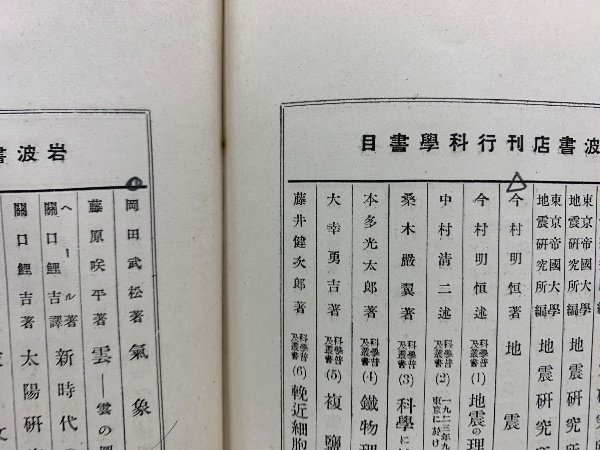 波書店刊行科學書目
東京帝國大學
地震研究所編 地震研究所
東京帝國大學
地震研究所編 地震研究所
今村明恒著 地震
今村明恒述 科學普及叢書(1) 地震の理
中村清二述 科學普及叢書(2) 一九二三年九 東京に於け
桑木嚴翼著 科學普及叢書(3) 科學に
本多光太郎著 科學普及叢書(4) 鐵物理
大幸勇吉著 科學普及叢書(5) 複鹽
藤井健次郎著 科學普及叢書(6) 輓近細胞
岩波書
岡田武松著 氣象
藤原咲平著 雲 雲の
ヘール著
關口鯉吉譯 新時代の
關口鯉吉著 太陽研